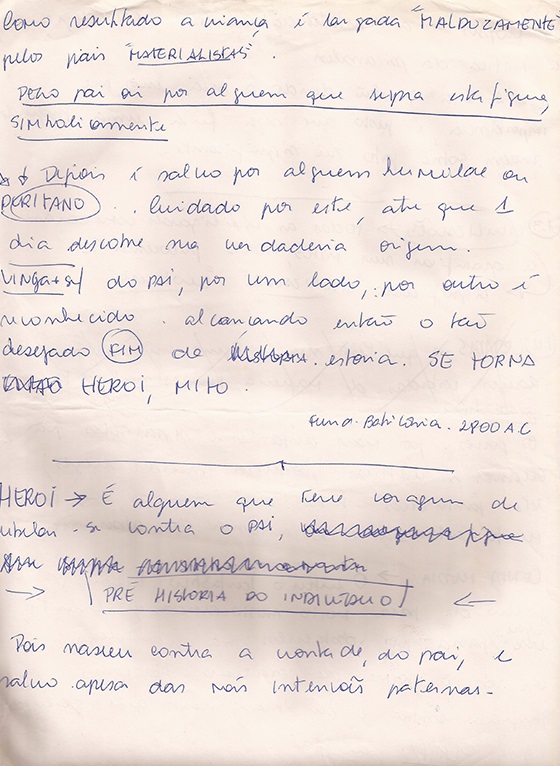 Como resultado a criança é largada "MALDOZAMENTE
pelos pais "MATERIALISTAS".
Pelo pai ou por alguem que supra esta figura,
SIMbolicamente
Depois é salvo por alguem humilde ou
PERIFANO. . Cuidado por este, ate que 1
dia descobre sua verdadeira origem.
VINGA-se/ do PAI, por um lado, por outro é
reconhecido. alcancando então o tão
desejado FIM de estoria. SE TORNA
HEROI, MITO.
Babilônia. 2800 A.C
HEROI → É alguem que teve coragem de
rebelar-se contra o PAI,
→ PRÉ HISTORIA DO INDIVIDUO ←
Pois nasceu contra a vontade, do pai, e
salvo apesa das más intencões paternas-